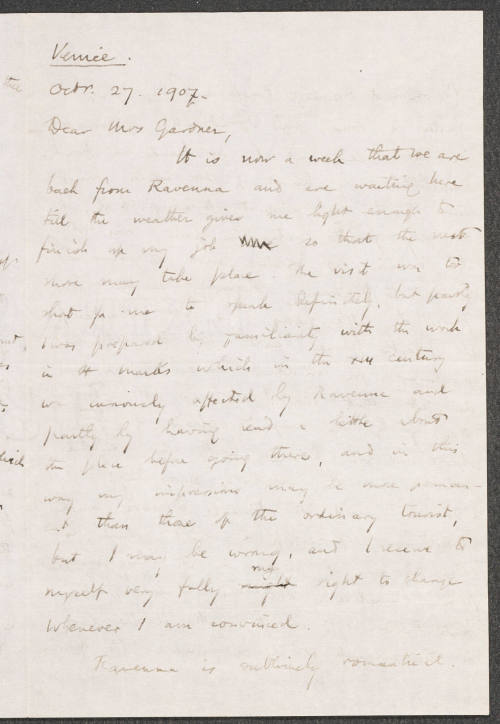 Venice.
Octr. 27. 1907.
Dear Mrs Gardner,
It is now a week that we are
back from Ravenna and are waiting here
till the weather gives me light enough to
finish up my job so that the next
move may take place. The visit was too
short for me to speak definitely, but partly
I was prepared by familiarity with the work
in St Marks which in the XIII century
was curiously affected by Ravenna and
partly by having read a little about
the place before going there, and in this
way my impressions may be more perman-
ent than those of the ordinary tourist,
but I may be wrong, and I reserve to
myself very fully my right to change
whenever I am convinced.
Ravenna is sublimely romantic.
the